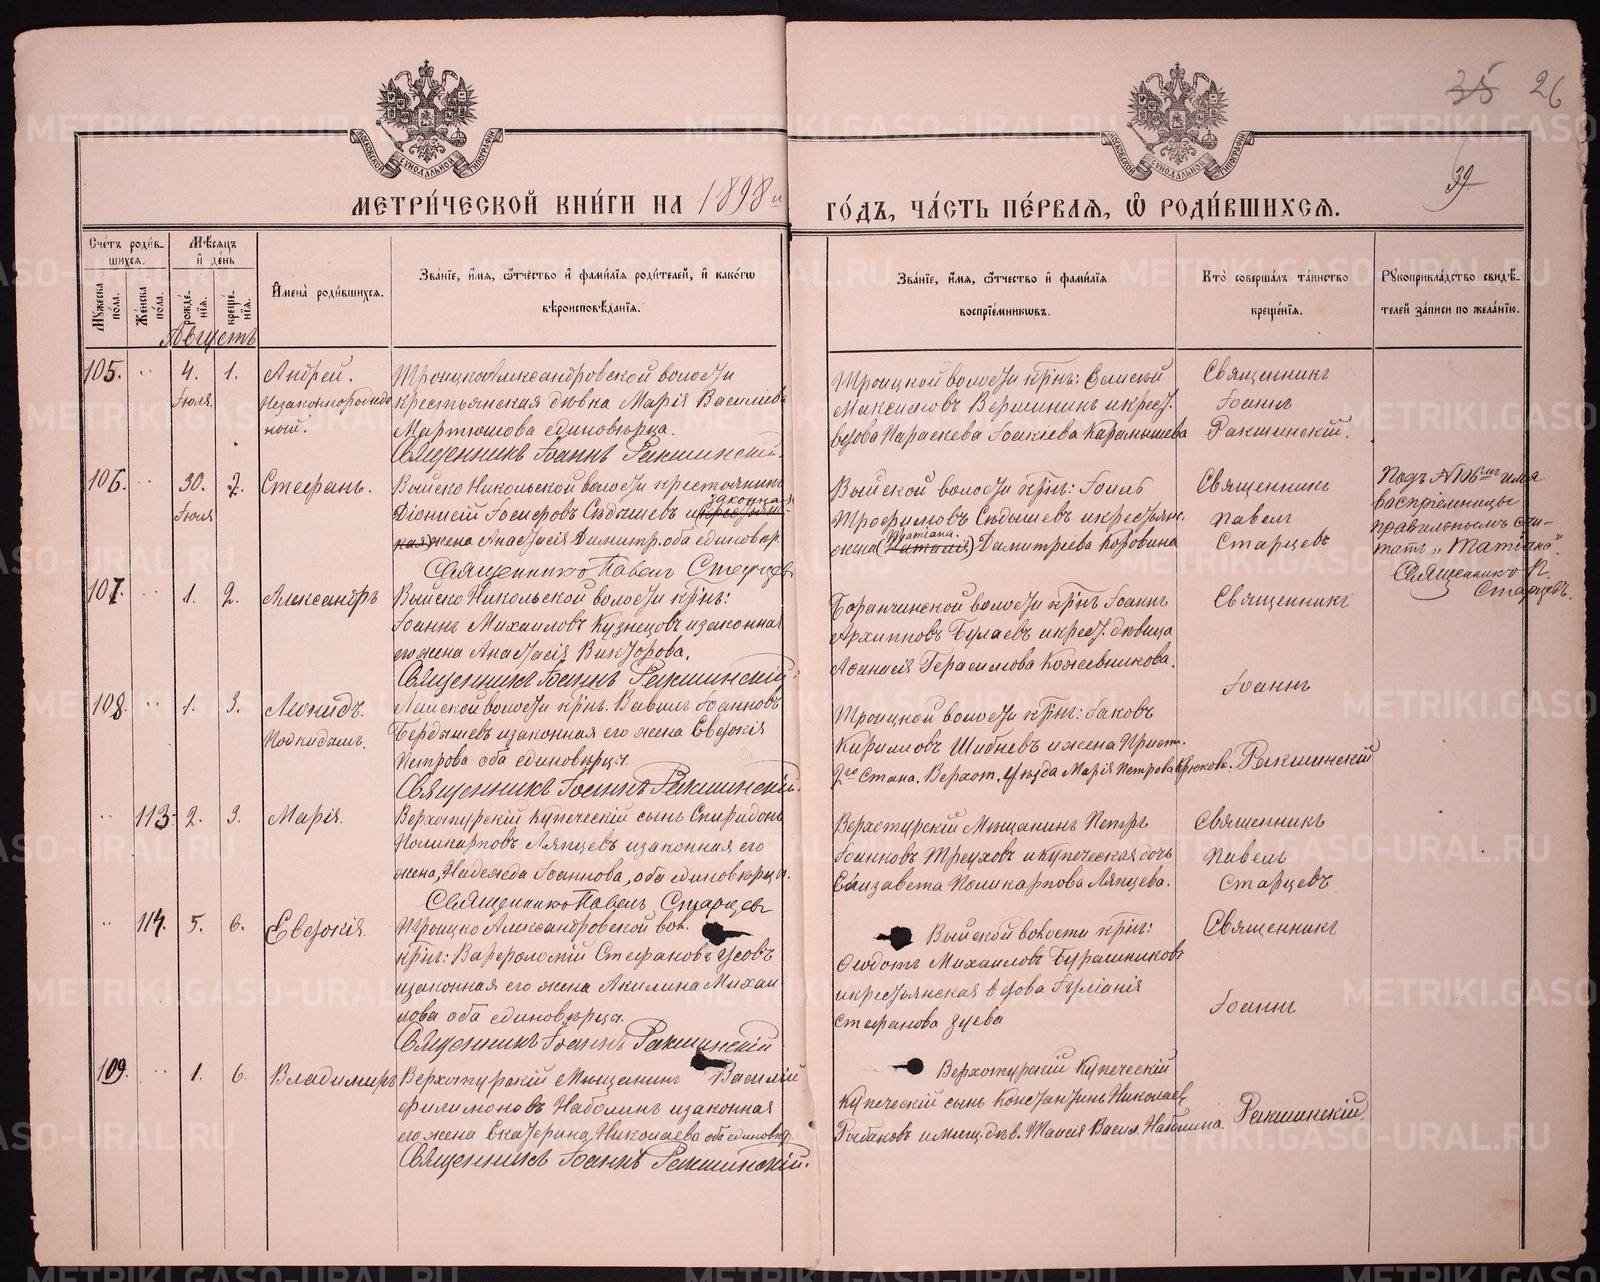 35 26
39
МЕТРИ́ЧЕСКОЙ КНИ́ГИ НА 1898 й ГО́ДЪ, ЧА́СТЬ ПЕ́РВАѦ, Ѿ РОДИ́ВШИХСѦ.
Сче́тъ роди́в-
шихсѧ.
Мѣ́сѧцъ
и де́нь
Мꙋ́жеска по́ла.
Же́нска по́ла.
рожде́нїѧ.
креще́нїѧ.
Имена̀ роди́вшихсѧ.
Зва́нїе, и́мѧ, ѻ҆́тчество и фами́лїѧ роди́телей, и како́гѡ
вѣроисповѣ́данїѧ.
Зва́нїе, и́мѧ, ѻ҆́тчество и фами́лїѧ
воспрїе́мникѡвъ.
Кто̀ соверша́лъ та́инство
креще́нїѧ.
Рꙋкоприкла́дство свидѣ́-
телей за́писи по жела́нїю.
Августъ
105. " 4. Іюля. 1.
Андрей.
Незаконнорожден
ный.
Троицкоалександровской волости
крестьянская дѣвка Марія Васильева
Мартюшова единовѣрца.
Священникъ Іоаннъ Ракшинскій.
Троицкой волости крн: Елисей
Максимовъ Вершининъ и крест.
вдова Параскева Іоакіева Карамышева
Священникъ
Іоаннъ
Ракшинскій.
106. " 30. Іюля 2.
Стефанъ.
Выйско Никольской волости крестьянинъ
Діонисій Іосифовъ Сѣдышевъ и законная
жена Анастасія Димитр. оба единовѣр
Священникъ Павелъ Старцевъ
Выйской волости крн: Іоиль
Трофимовъ Сѣдышевъ и крестьянс.
жена (Наталія) Татіана Димитріева Коровина
Священникъ
Павелъ
Старцевъ
Подъ №106мъ имя
воспріемницы
правильнымъ счи-
тать "Татіана".
Священникъ П.
Старцевъ.
107. " 1. 2.
Александръ
Выйско Никольской волости крн:
Іоаннъ Михаиловъ Кузнецовъ и законная
его жена Анастасія Викторова.
Священникъ Іоаннъ Ракшинскій.
Баранчинской волости крн Іоаннъ
Архиповъ Булаевъ и крест. дѣвица
Аѳанасія Герасимова Кожевникова.
Священникъ
Іоаннъ
108. " 1. 3.
Леонидъ.
Подкидышъ.
Лайской волости крн. Вавилъ Іоанновъ
Бердышевъ и законная его жена Евдокія
Петрова оба единовѣрцы.
Священникъ Іоаннъ Ракшинскій.
Троицкой волости крн: Іаковъ
Кириловъ Шибневъ и жена Прист.
2го Стана. Верхот. Уѣзда Марія Петрова Крюкова.
Ракшинскій
" 113. 2. 3.
Марія.
Верхотурскій Купеческій сынъ Спиридонъ
Поликарповъ Ляпцевъ и законная его
жена, Надежда Іоаннова, оба единовѣрцы.
Священникъ Павелъ Старцевъ
Верхотурскій Мѣщанинъ Петръ
Іоанновъ Треуховъ и купеческая дочь
Елизавета Поликарпова Ляпцева.
Священникъ
Павелъ
Старцевъ
" 114. 5. 6.
Евдокія.
Троицко Александровской вол.
крн: Варфоломій Стефановъ Усовъ
и законная его жена Акилина Михаи-
лова оба единовѣрцы.
Священникъ Іоаннъ Ракшинскій
Выйской волости крн:
Ѳеодотъ Михаиловъ Бурашниковъ
и крестьянская вдова Іуліанія
Стефанова Зуева
Священникъ
Іоаннъ
109. " 1. 6.
Владимиръ
Верхотурскій Мѣщанинъ Василій
Филимоновъ Наболинъ и законная
его жена Екатерина Николаева оба единовѣр.
Священникъ Іоаннъ Ракшинскій.
Верхотурскій Купеческій
Купеческій сынъ Константинъ Николаев
Рыбаковъ и мѣщ. дѣв. Таисія Васил. Наболина.
Ракшинскій
METRIKI.GASO-URAL.RU